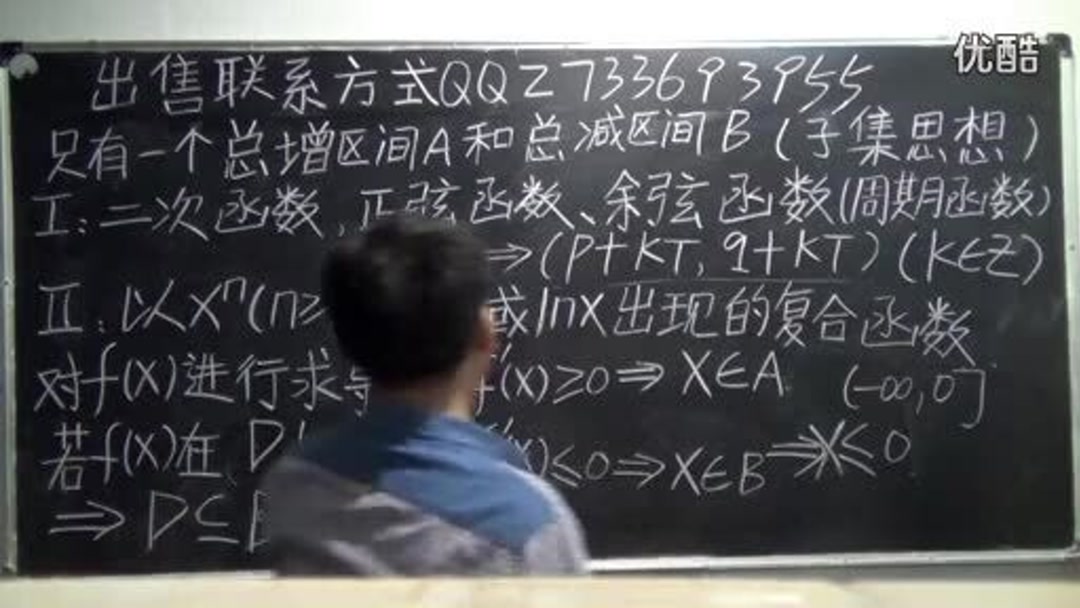 优酷
出售联系方式QQ2733693955
只有一个总增区间A和总减区间B(子集思想)
I:二次函数,正弦函数、余弦函数(周期函数)
⇒(P+KT,q+KT)(K∈Z)
II:以X^n(n≥ 或lnX出现的复合函数
对f(X)进行求导 f'(X)≥0⇒X∈A (-∞,0]
若f(X)在D )≤0⇒X∈B⇒X≤0
⇒D⊆